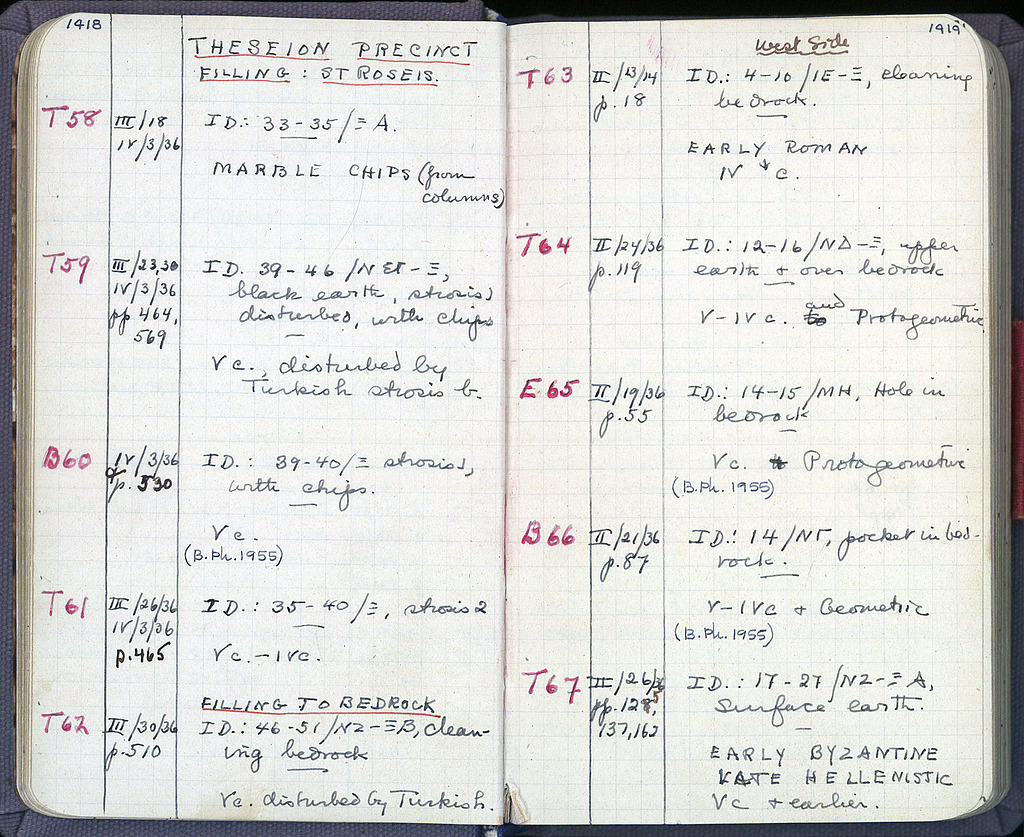 1418
THESEION PRECINCT
FILLING : STROSEIS.
T58
III/18
IV/3/36
ID: 33-35/Ξ A.
MARBLE CHIPS (from
columns)
T59
III/23,30
IV/3/36
pp 464,
569
ID. 39-46/N ET-Ξ,
black earth, strosis 1
disturbed, with chips
Vc., disturbed by
Turkish strosis b.
B60
IV/3/36
p. 530
ID.: 39-40/Ξ strosis 1,
with chips.
Vc.
(B.Ph. 1955)
T61
III/26/36
IV/3/36
p. 465
ID.: 35-40/Ξ, strosis 2
Vc.-IVc.
FILLING TO BEDROCK
T62
III/30/36
p.510
ID: 46-51/NZ-ΞB, clean-
ing bedrock
Vc. disturbed by Turkish.
1419
West Side
T63
II/13/14
p. 18
ID.: 4-10/IE-Ξ, cleaning
bedrock.
EARLY ROMAN
IV c.
T64
II/24/36
p. 119
ID.: 12-16/NΔ-Ξ, upper
earth + over bedrock
V-IVc. and to Protogeometric
E65
II/19/36
p. 55
ID.: 14-15/MH, Hole in
bedrock
Vc. Protogeometric
(B.Ph. 1955)
B66
II/21/36
p. 87
ID.: 14/NΓ, pocket in bed-
rock.
V-IVc + Geometric
(B.Ph. 1955)
T67
III/26/36
pp. 125,
137,162
ID.: 17-27/NZ-ΞA,
Surface earth.
EARLY BYZANTINE
LATE HELLENISTIC
Vc + earlier.